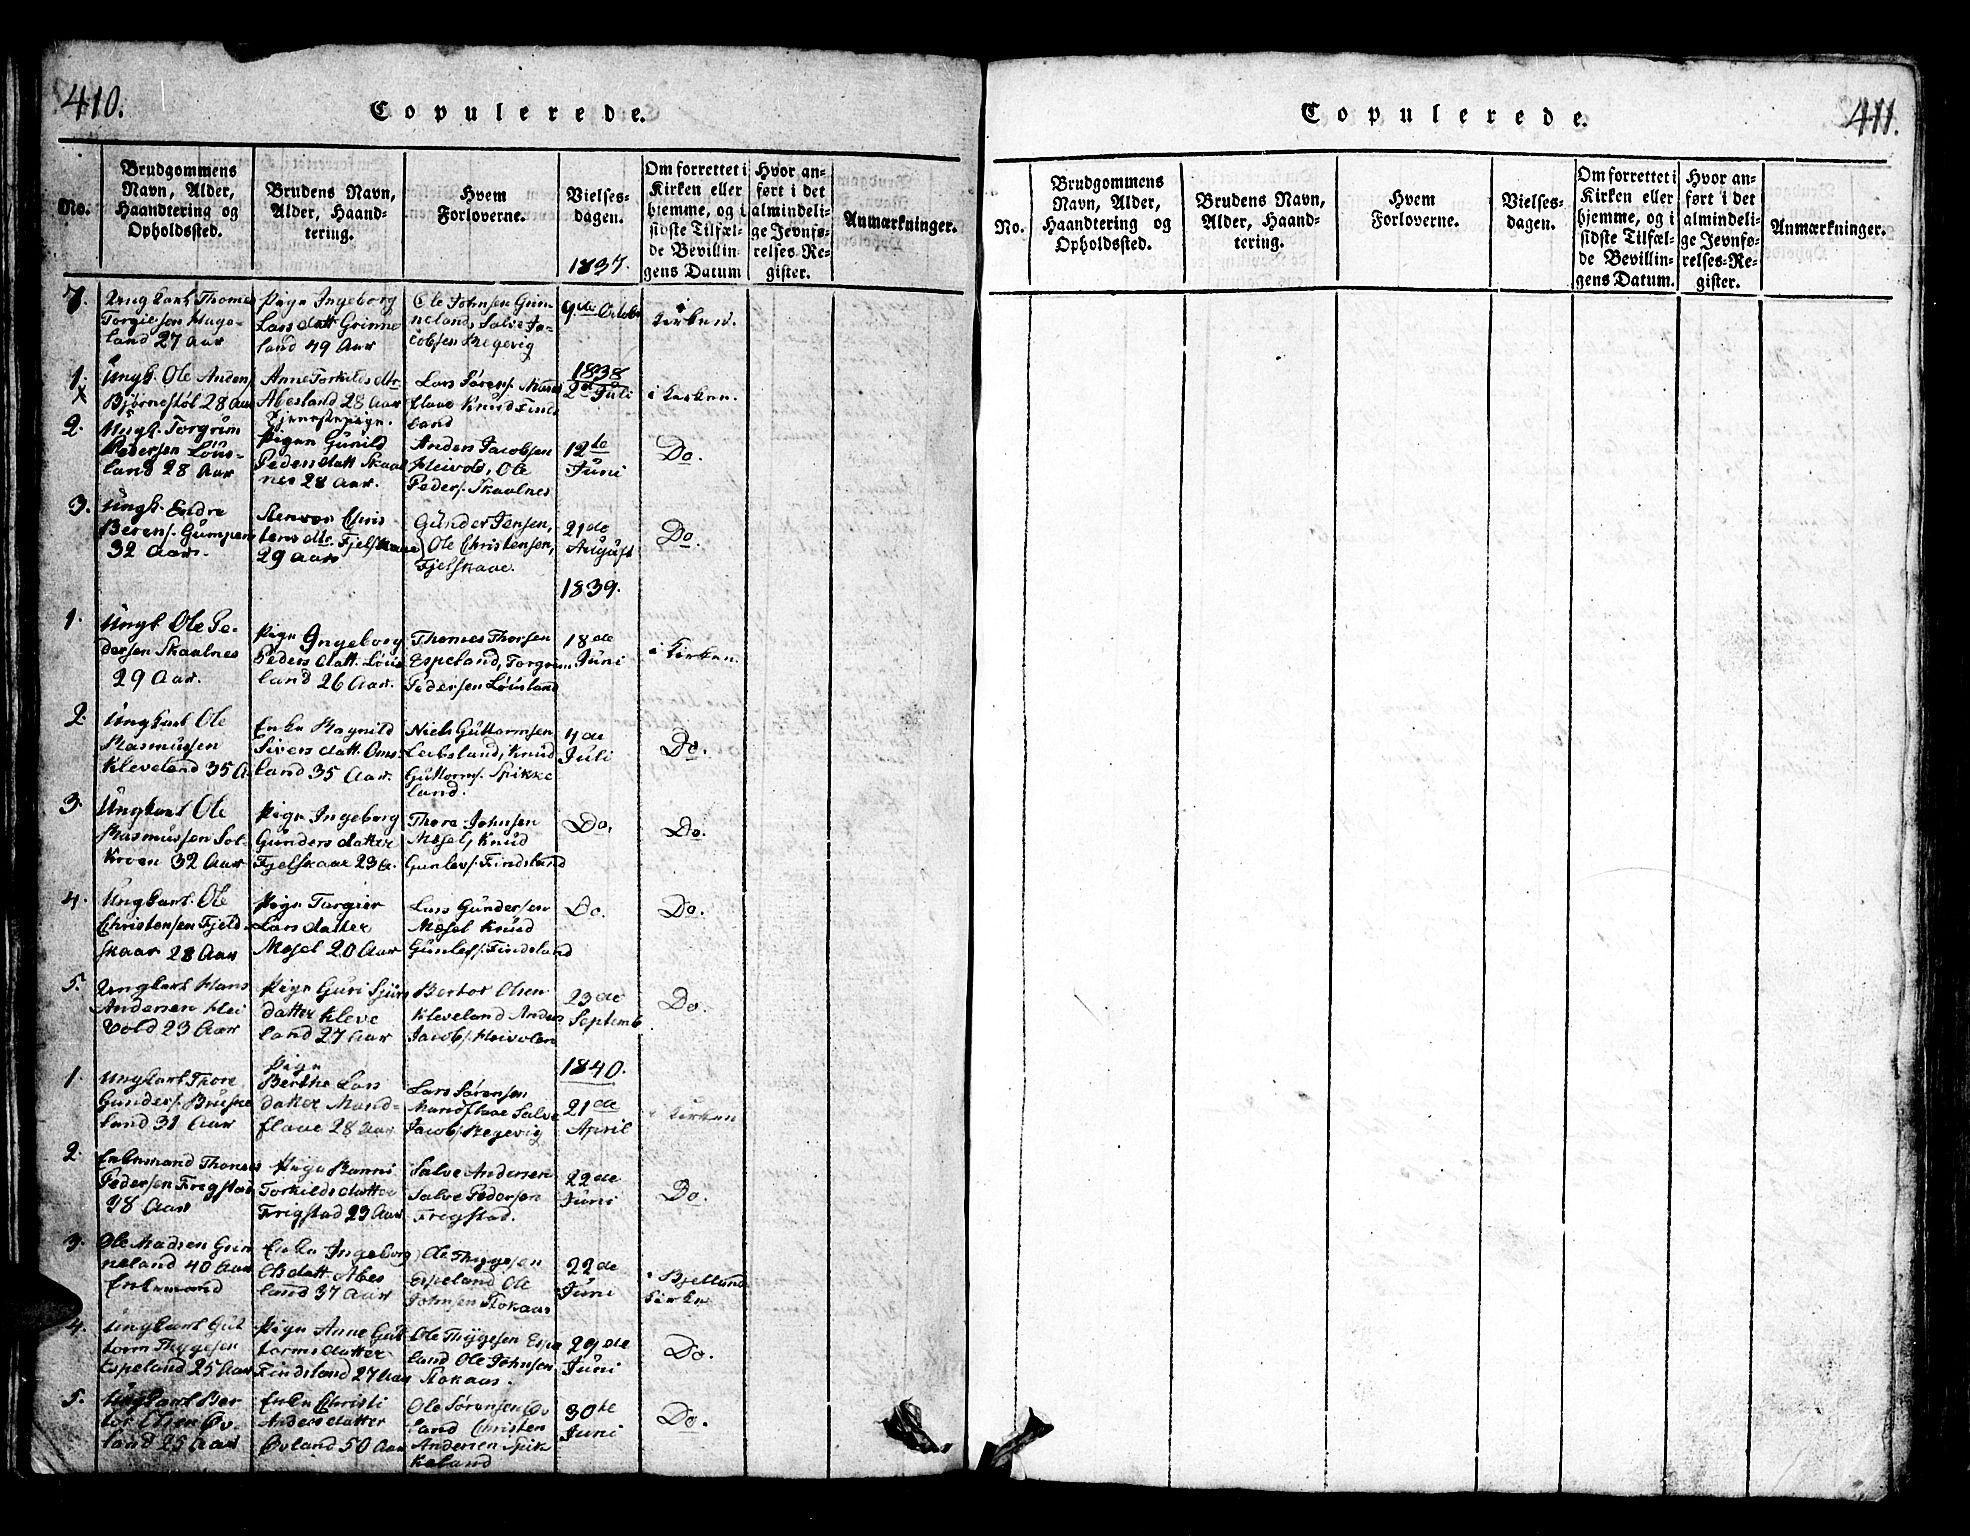 410.
Copulerede.
No.
Brudgommens
Navn, Alder,
Haandtering og
Opholdssted.
Brudens Navn,
Alder, Haand-
tering.
Hvem
Forloverne.
Vielses-
dagen.
1837.
Om forrettet i
Kirken eller
hjemme, og i
sidste Tilfæl-
de Bevillin-
gens Datum
Hvor an-
ført i det
almindeli-
ge Jevnfø-
relses-Re-
gister.
Anmærkninger.
7.
Ungkarl Thomes
Torgilsen Hage-
land 27 Aar
Pige Ingeborg
Lars datt Grinne
land 49 Aar
Ole Johnsen Grin-
neland, Salve Ja-
cobsen Regevig
9de Octobr
i
Kirken.
1838
1.
Ungk. Ole Anders
Bjørnestøl 28 Aar
Anne Torkilds dtr
Abesland 28 Aar
Tjenestepige.
Lars Sørens. Mand
flaae Knud Finds
land
2de Juli
i Kirken.
2.
Ungk. Torgrim
Pedersen Løus-
land 28 Aar
Pigen Gunild
Peders datt Skaal
nes 28 Aar.
Anders Jacobsen
Heivold, Ole
Peders. Skaalnes
12te
Juni
Do.
3.
Ungk. Endre
Berens. Gumpen
32 Aar.
Chris
tens dtr. Fjelskaae
29 Aar
Gunder Jensen,
Ole Christensen,
Fjelskaae.
21de
August
Do.
1839.
1.
Ungk Ole Pe-
dersen Skaalnes
29 Aar.
Pige Ingeborg
Peders datt. Løus
land 26 Aar.
Thomes Thorsen
Espeland, Torgrim
Pedersen Løusland
18de
Juni
i Kirken.
2.
Ungkarl Ole
Rasmussen
Kleveland 35 A.
Enke Ragnild
Sivers datt. Oms-
land 35 Aar.
Niels Guttormsen
Leibsland, Knud
Guttorms. Spikke
land.
4de
Juli
Do.
3.
Ungkarl Ole
Rasmussen Sol-
Kroen 32 Aar
Pige Ingeborg
Gunders datter
Fjelskaar 23 A.
Thore Johnsen
Mosel, Knud
Gunlevs. Findsland
Do.
Do.
4.
Ungkarl. Ole
Christensen Fjeld
skaar 28 Aar
Pige Torgier
Lars datter
Mosel 20 Aar
Lars Gundersen
Mosel Knud
Gunlevs. Findsland
Do.
Do.
5.
Ungkarl Hans
Andersen Hei
vold 23 Aar
Pige Guri Sjurs
datter Kleve
land 27 Aar
Bertor Olsen
Kleveland Anders
Jacobs. Heivolen
23de
Septemb
Do.
1840.
1.
Ungkarl Thore
Gunders. Bruske
land 31 Aar
Pige
Berthe Lars
datter Mand-
flaae 28 Aar
Lars Sørensen
Mandflaae Salve
Jacobs. Regevig
21de
April
i Kirken
2.
Enkemand Thomes
Pedersen Frigstad
48 Aar
Pige Ranni
Torkilds datter
Frigstad 23 Aar
Salve Andersen
Salve Pedersen
Fregstad.
22de
Juni
Do.
3.
Ole Madsen Grin
neland 40 Aar
Enkemand
Enke Ingeborg
Ols datt. Abes
land 37 Aar
Ole Thygesen
Espeland Ole
Johnsen Stokaas
22de
Juni
i Bjelland
Kirke
4.
Ungkarl Gut
torm Thygesen
Espeland 25 Aar
Pige Anne Gut
torms datter
Findsland 27 Aar
Ole Thygesen Espe
land Ole Johnsen
Stokaas.
29de
Juni
Do.
5.
Ungkarl Ber
tor Olsen Øv
land 25 Aar
Enke Christi
Anders datter
Øvland 50 Aar
Ole Sørensen Øv
land Christen
Andersen Spik
keland
30te
Juni
Do.
411.
Copulerede.
No.
Brudgommens
Navn, Alder,
Haandtering og
Opholdssted.
Brudens Navn,
Alder, Haand-
tering.
Hvem
Forloverne.
Vielses-
dagen.
Om forrettet i
Kirken eller
hjemme, og i
sidste Tilfæl-
de Bevillin-
gens Datum.
Hvor an-
ført i det
almindeli-
ge Jevnfø-
relses-Re-
gister.
Anmærkninger.